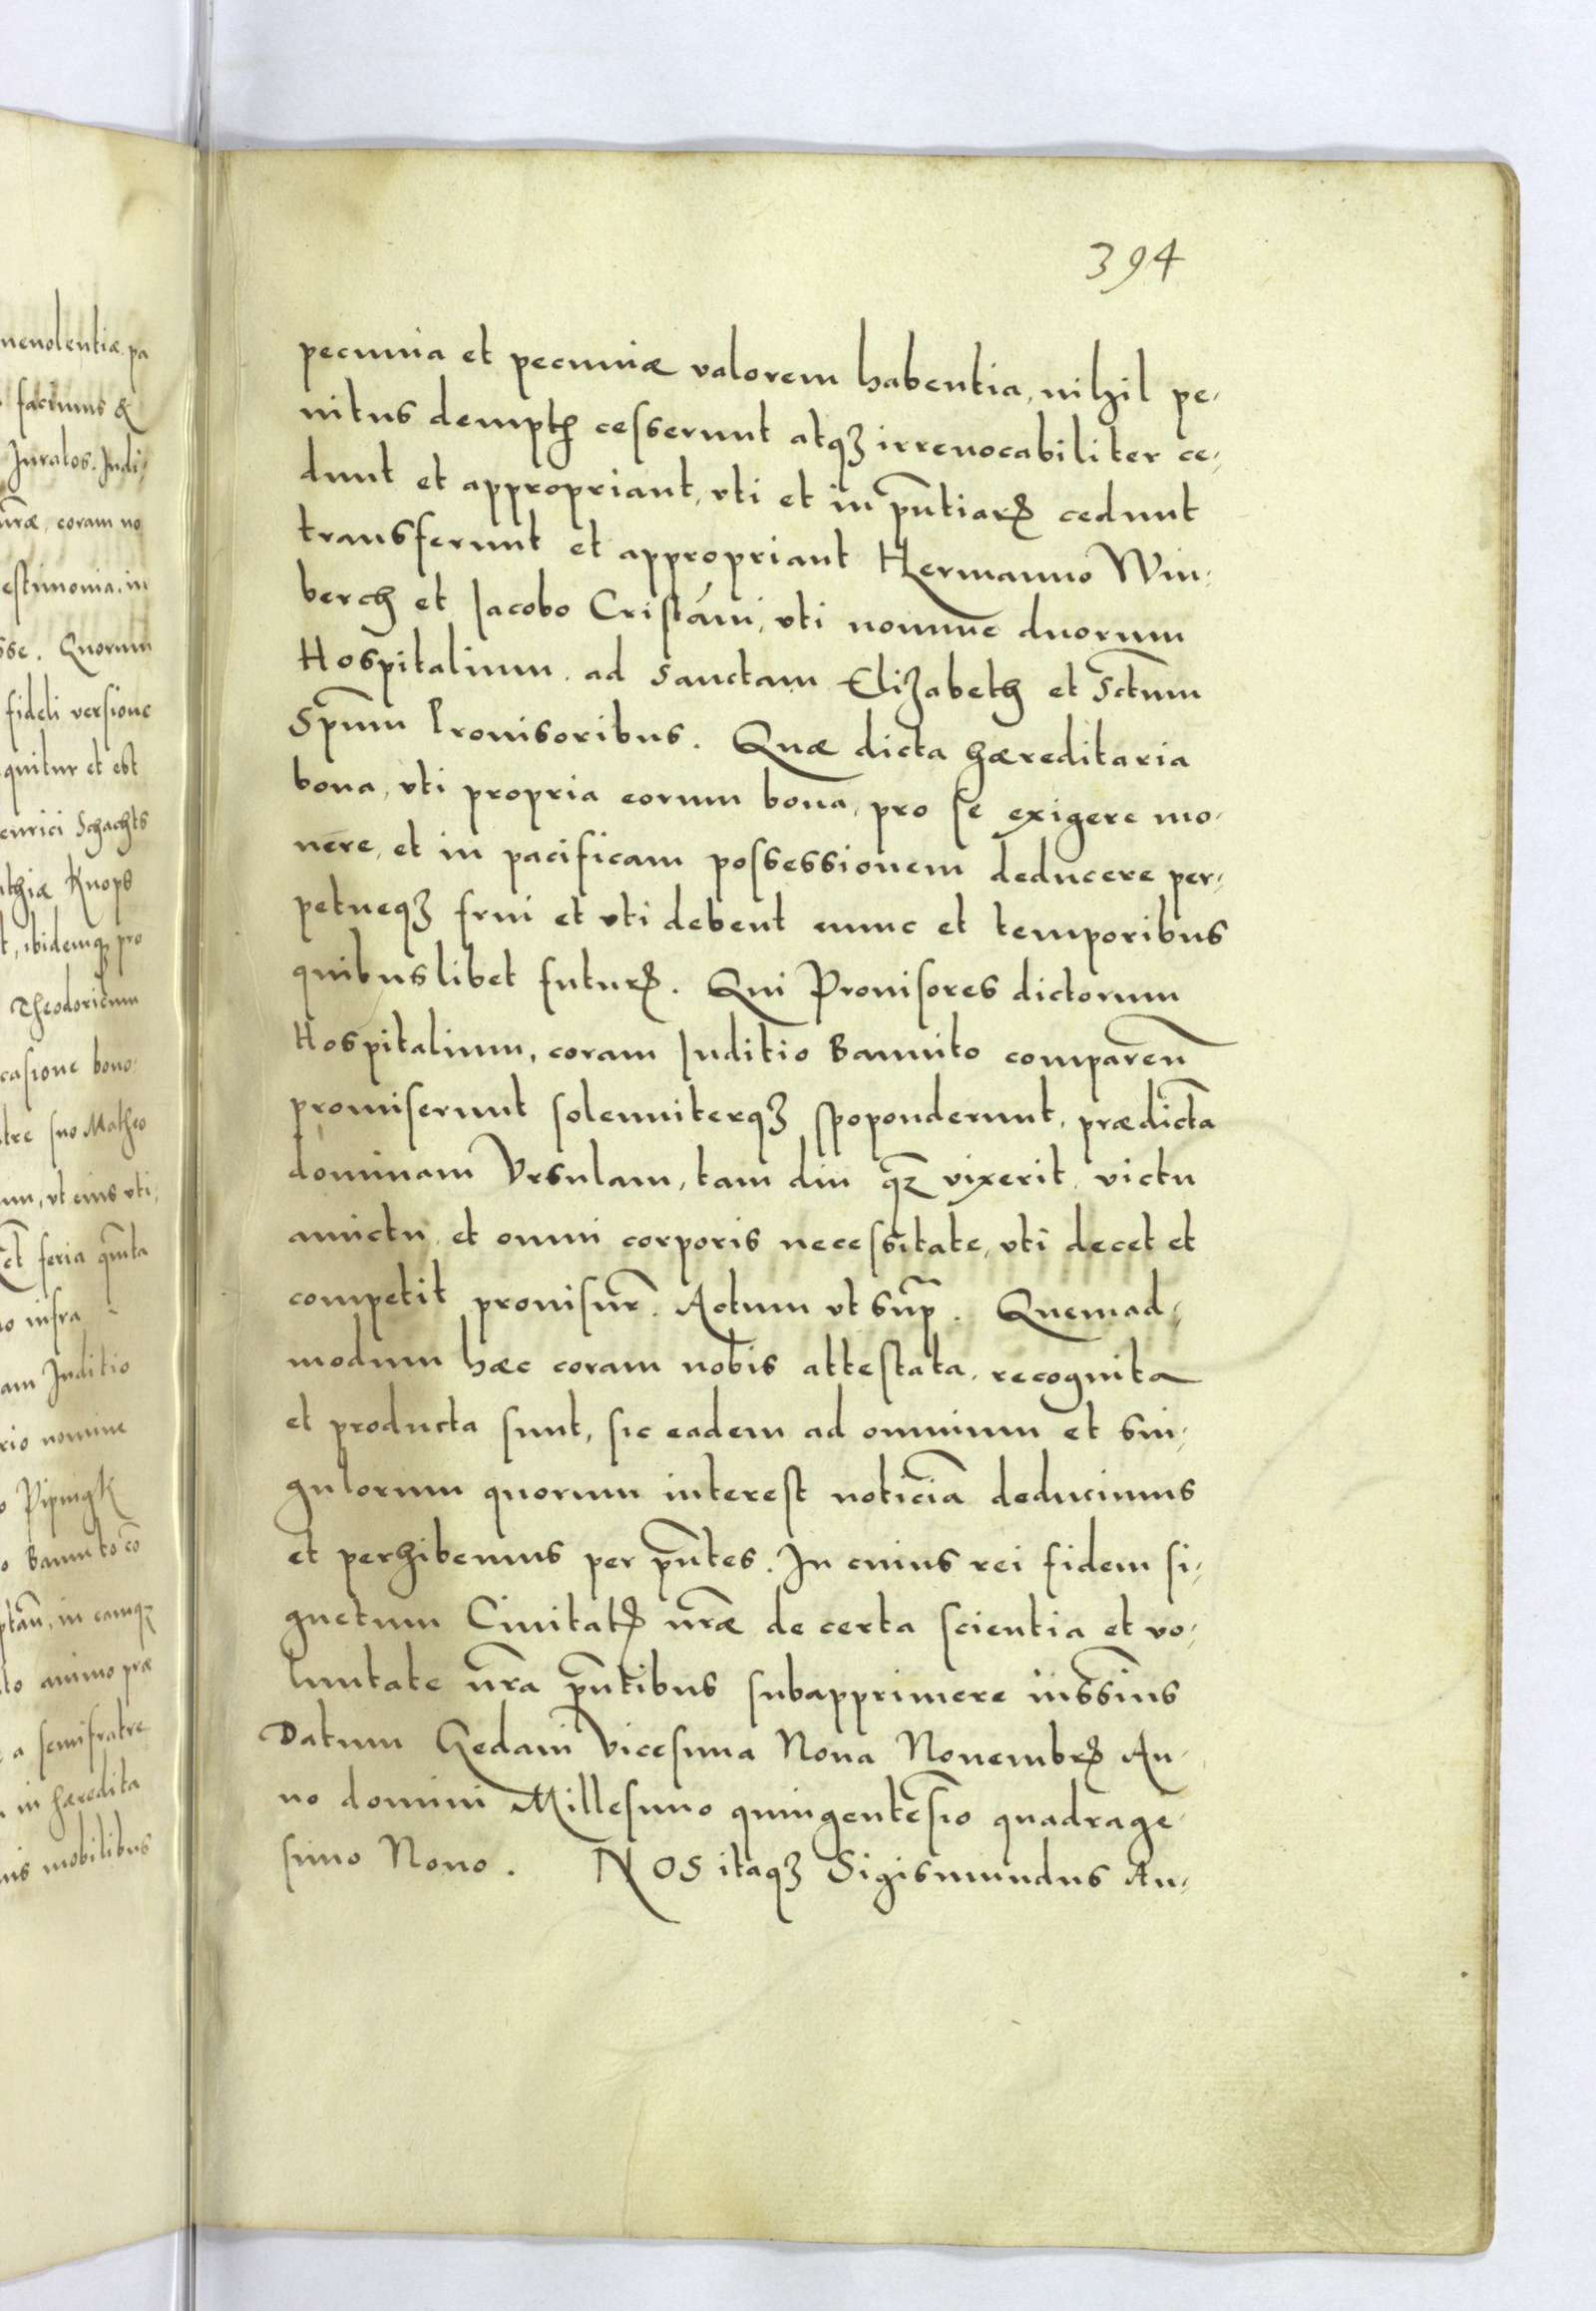 394
pecunia et pecuniæ valorem habentia, nihil pe-
nitus dempth cesserunt atqȝ irreuocabiliter ce-
dunt et appropriant, vti et in pñtiarꝭ cedunt
transferunt et appropriant Hermanno Win-
berch et Jacobo Cristani, vti nomine duorum
Hospitalium, ad sanctam Elizabeth et Sctum
Spūm Prouisoribus. Quæ dicta hæreditaria
bona, vti propria eorum bona, pro se exigere mo-
nere, et in pacificam possessionem deducere per-
petueqȝ frui et vti debent nunc et temporibus
quibuslibet futurꝭ. Qui Prouisores dictorum
Hospitalium, coram Juditio Bannito comparen̄
promiserunt solenniterqȝ spoponderunt, prædictā
dominam Vrsulam, tam diu qȝ vixerit, victu
amictu, et omni corporis necessitate, vti decet et
competit prouisur̄. Actum vt supͣ. Quemad-
modum hæc coram nobis attestata, recognita
et producta sunt, sic eadem ad omnium et sin-
gulorum quorum interest noticiā deducimus
et perhibemus per pñtes. In cuius rei fidem si-
gnetum Ciuitatꝭ nr̄æ de certa scientia et vo-
luntate nr̄a pñtibus subapprimere iussim̄us
Datum Gedani Vicesima Nona Nouembrꝭ An-
no domini Millesimo quingentesīo quadrage-
simo Nono. NOS itaqȝ Sigismundus Au-
neuolentiæ pa
factums &
Juratos. Judi-
nr̄æ, coram no
estimonia, in
sse. Quorum
fideli versione
quitur et est
enrici Schachts
nthiæ Knops
t, ibidemqȝ pro
Theodoricum
casione bono-
tre suo Matheo
um, vt eius vti-
feria quīta
o infra
am Juditio
rio nomine
o Pipingk
o Bannito cō
ptāu, in eamqȝ
to animo præ
a semifratre
in hæredita
nis mobilibus